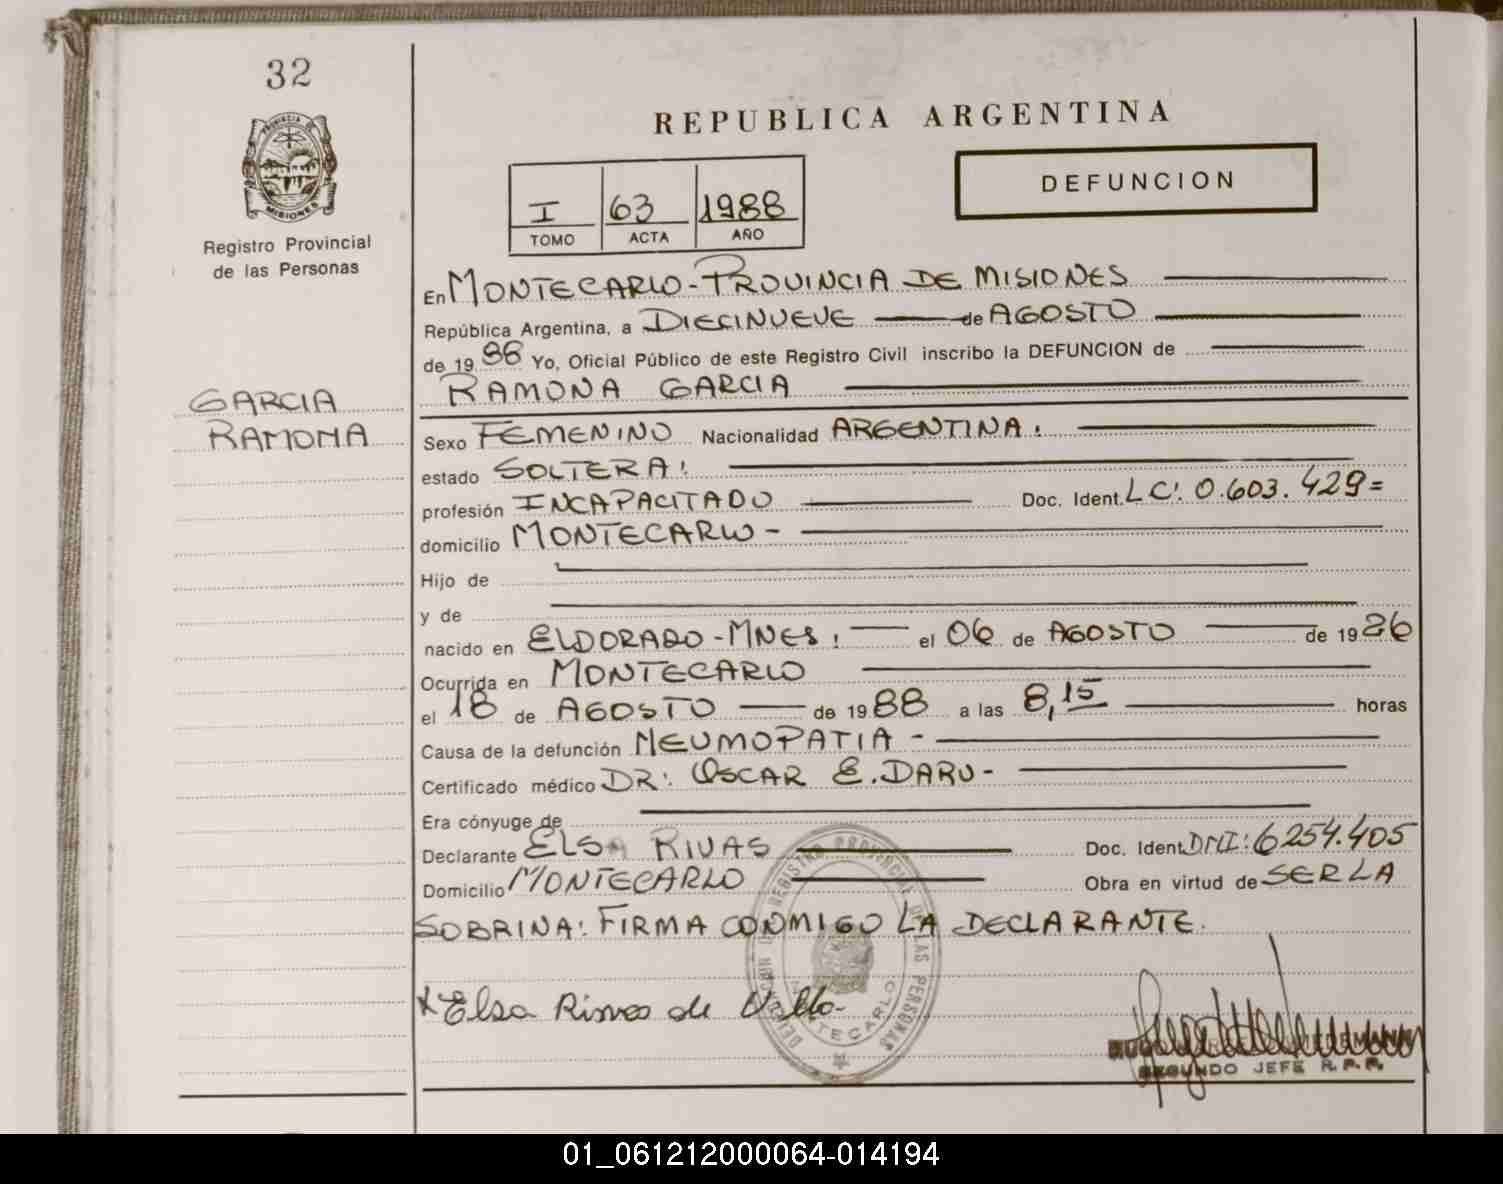 32
PROVINCIA DE
MISIONES
Registro Provincial
de las Personas
REPUBLICA ARGENTINA
I 63 1988
TOMO ACTA AÑO
DEFUNCION
En MONTECARLO - PROVINCIA DE MISIONES
República Argentina, a DIECINUEVE de AGOSTO
de 1988 Yo, Oficial Público de este Registro Civil inscribo la DEFUNCION de
RAMONA GARCIA
GARCIA
RAMONA
Sexo FEMENINO Nacionalidad ARGENTINA:
estado SOLTERA:
profesión INCAPACITADO Doc. Ident. LC: 0.603.429=
domicilio MONTECARLO -
Hijo de
y de
nacido en ELDORADO - MNES: el 06 de AGOSTO de 1926
Ocurrida en MONTECARLO
el 18 de AGOSTO de 1988 a las 8,15 horas
Causa de la defunción NEUMOPATIA -
Certificado médico DR: OSCAR E. DARU -
Era cónyuge de
Declarante ELSA RIVAS Doc. Ident. DNI: 6254.405
Domicilio MONTECARLO Obra en virtud de SER LA
SOBRINA: FIRMA CONMIGO LA DECLARANTE.
x Elsa Rivas de
REGISTRO PROVINCIAL DE LAS PERSONAS
MONTECARLO
SEGUNDO JEFE R.P.P.
01_061212000064-014194